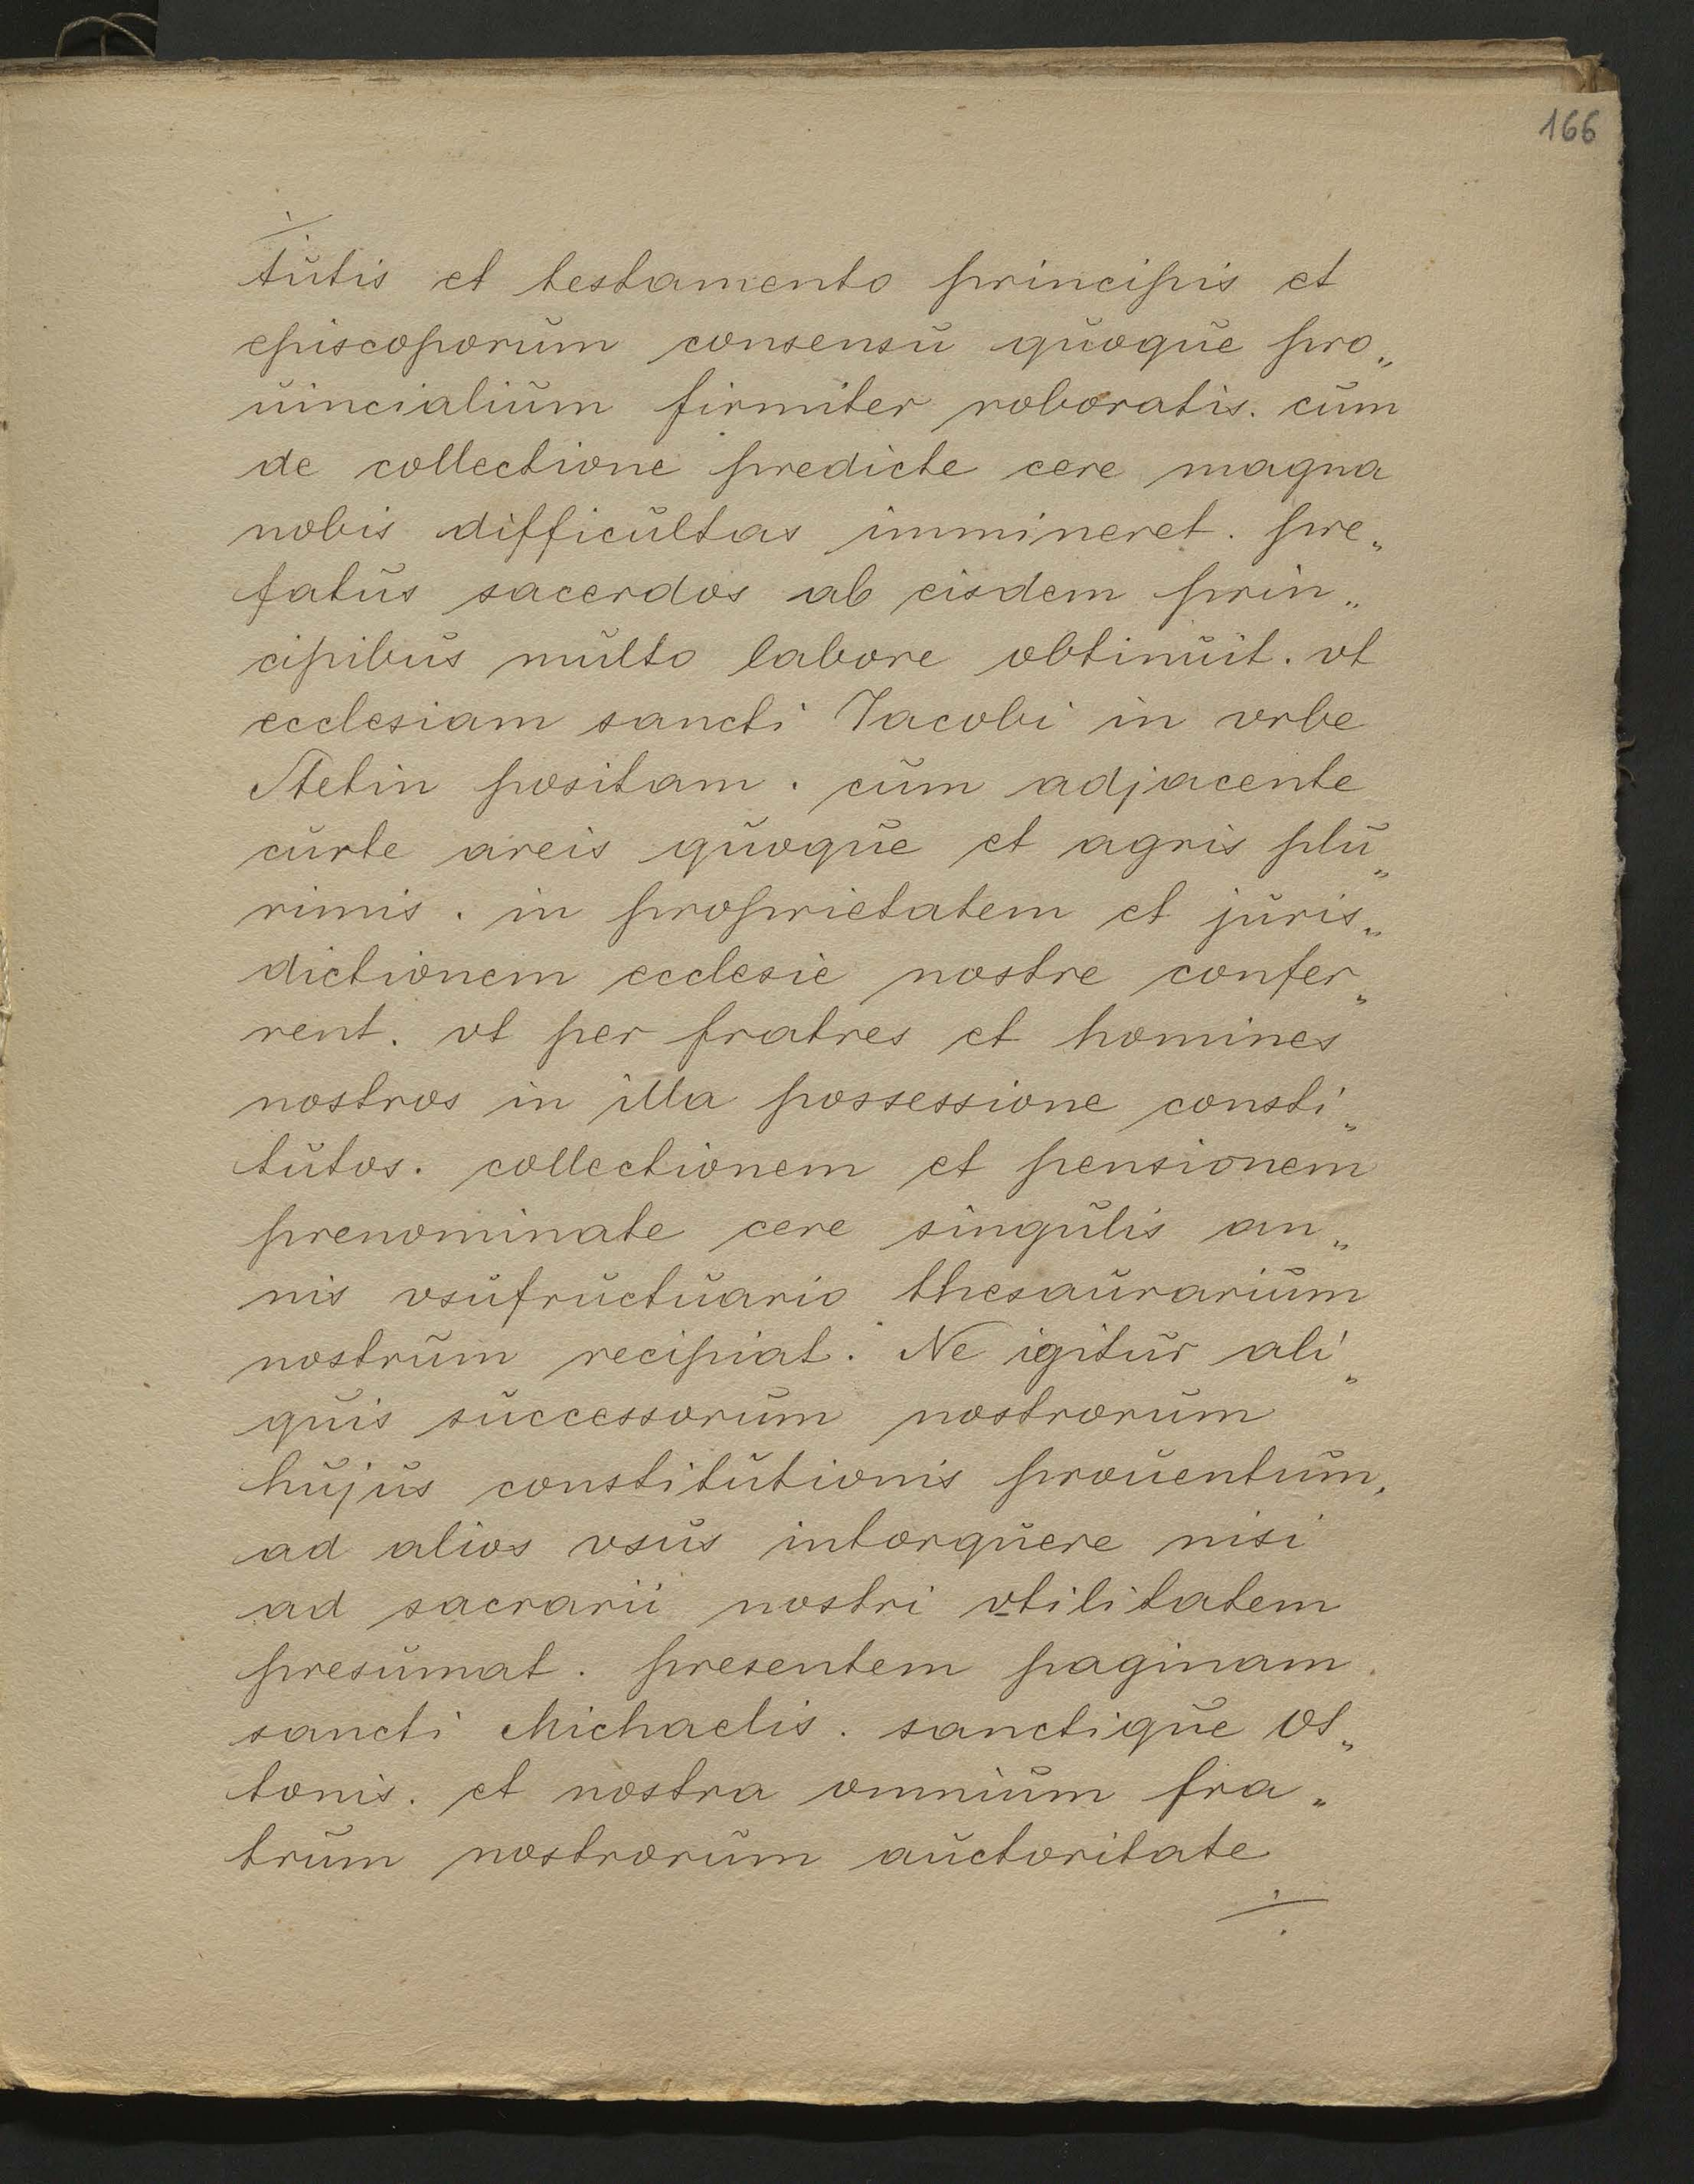 166
tutis et testamento principis et
episcoporum consensu quoque pro„
uincialium firmiter roboratis. cum
de collectione predicte cere magna
nobis difficultas immineret. pre„
fatus sacerdos ab eisdem prin„
cipibus multo labore obtinuit. vt
ecclesiam sancti Jacobi in vrbe
Stetin positam. cum adjacente
curte areis quoque et agris plu„
rimis. in proprietatem et juris„
dictionem ecclesie nostre confer„
rent. vt per fratres et homines
nostros in illa possessione consti„
tutos. collectionem et pensionem
prenominate cere singulis an„
nis vsufructuario thesaurarium
nostrum recipiat. Ne igitur ali„
quis successorum nostrorum
hujus constitutionis prouentum,
ad alios vsus intorquere nisi
ad sacrarii nostri vtilitatem
presumat. presentem paginam
sancti Michaelis. sanctique Ot„
tonis. et nostra omnium fra„
trum nostrorum auctoritate